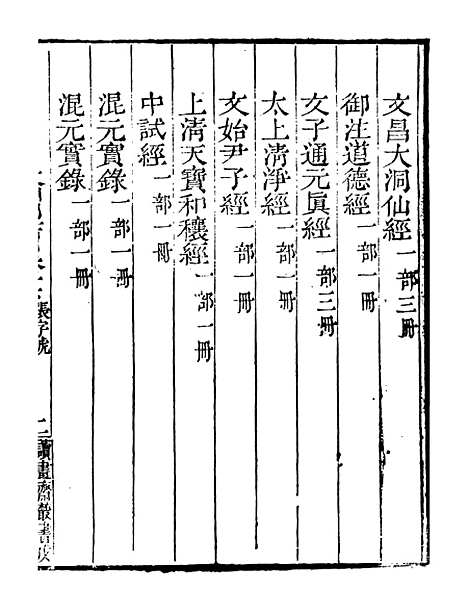 文昌大洞仙經一部三冊
御注道德經一部一冊
文子通元眞經一部三冊
太上清淨經一部一冊
文始尹子經一部一冊
上清天寶和穰經一部一冊
中試經一部一冊
混元實錄一部一冊
混元實錄一部一冊
張字號
二讀畫齋叢書